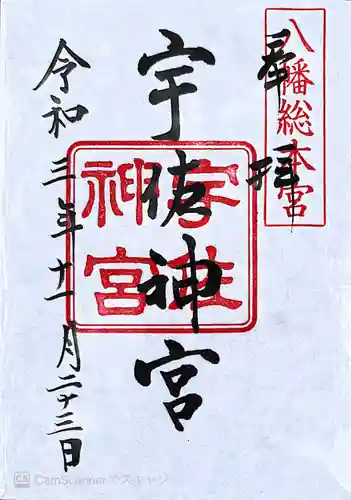 奉拝
八幡総本宮
宇佐神宮
宇佐
神宮
令和三年十一月二十三日
CS CamScannerでスキャン